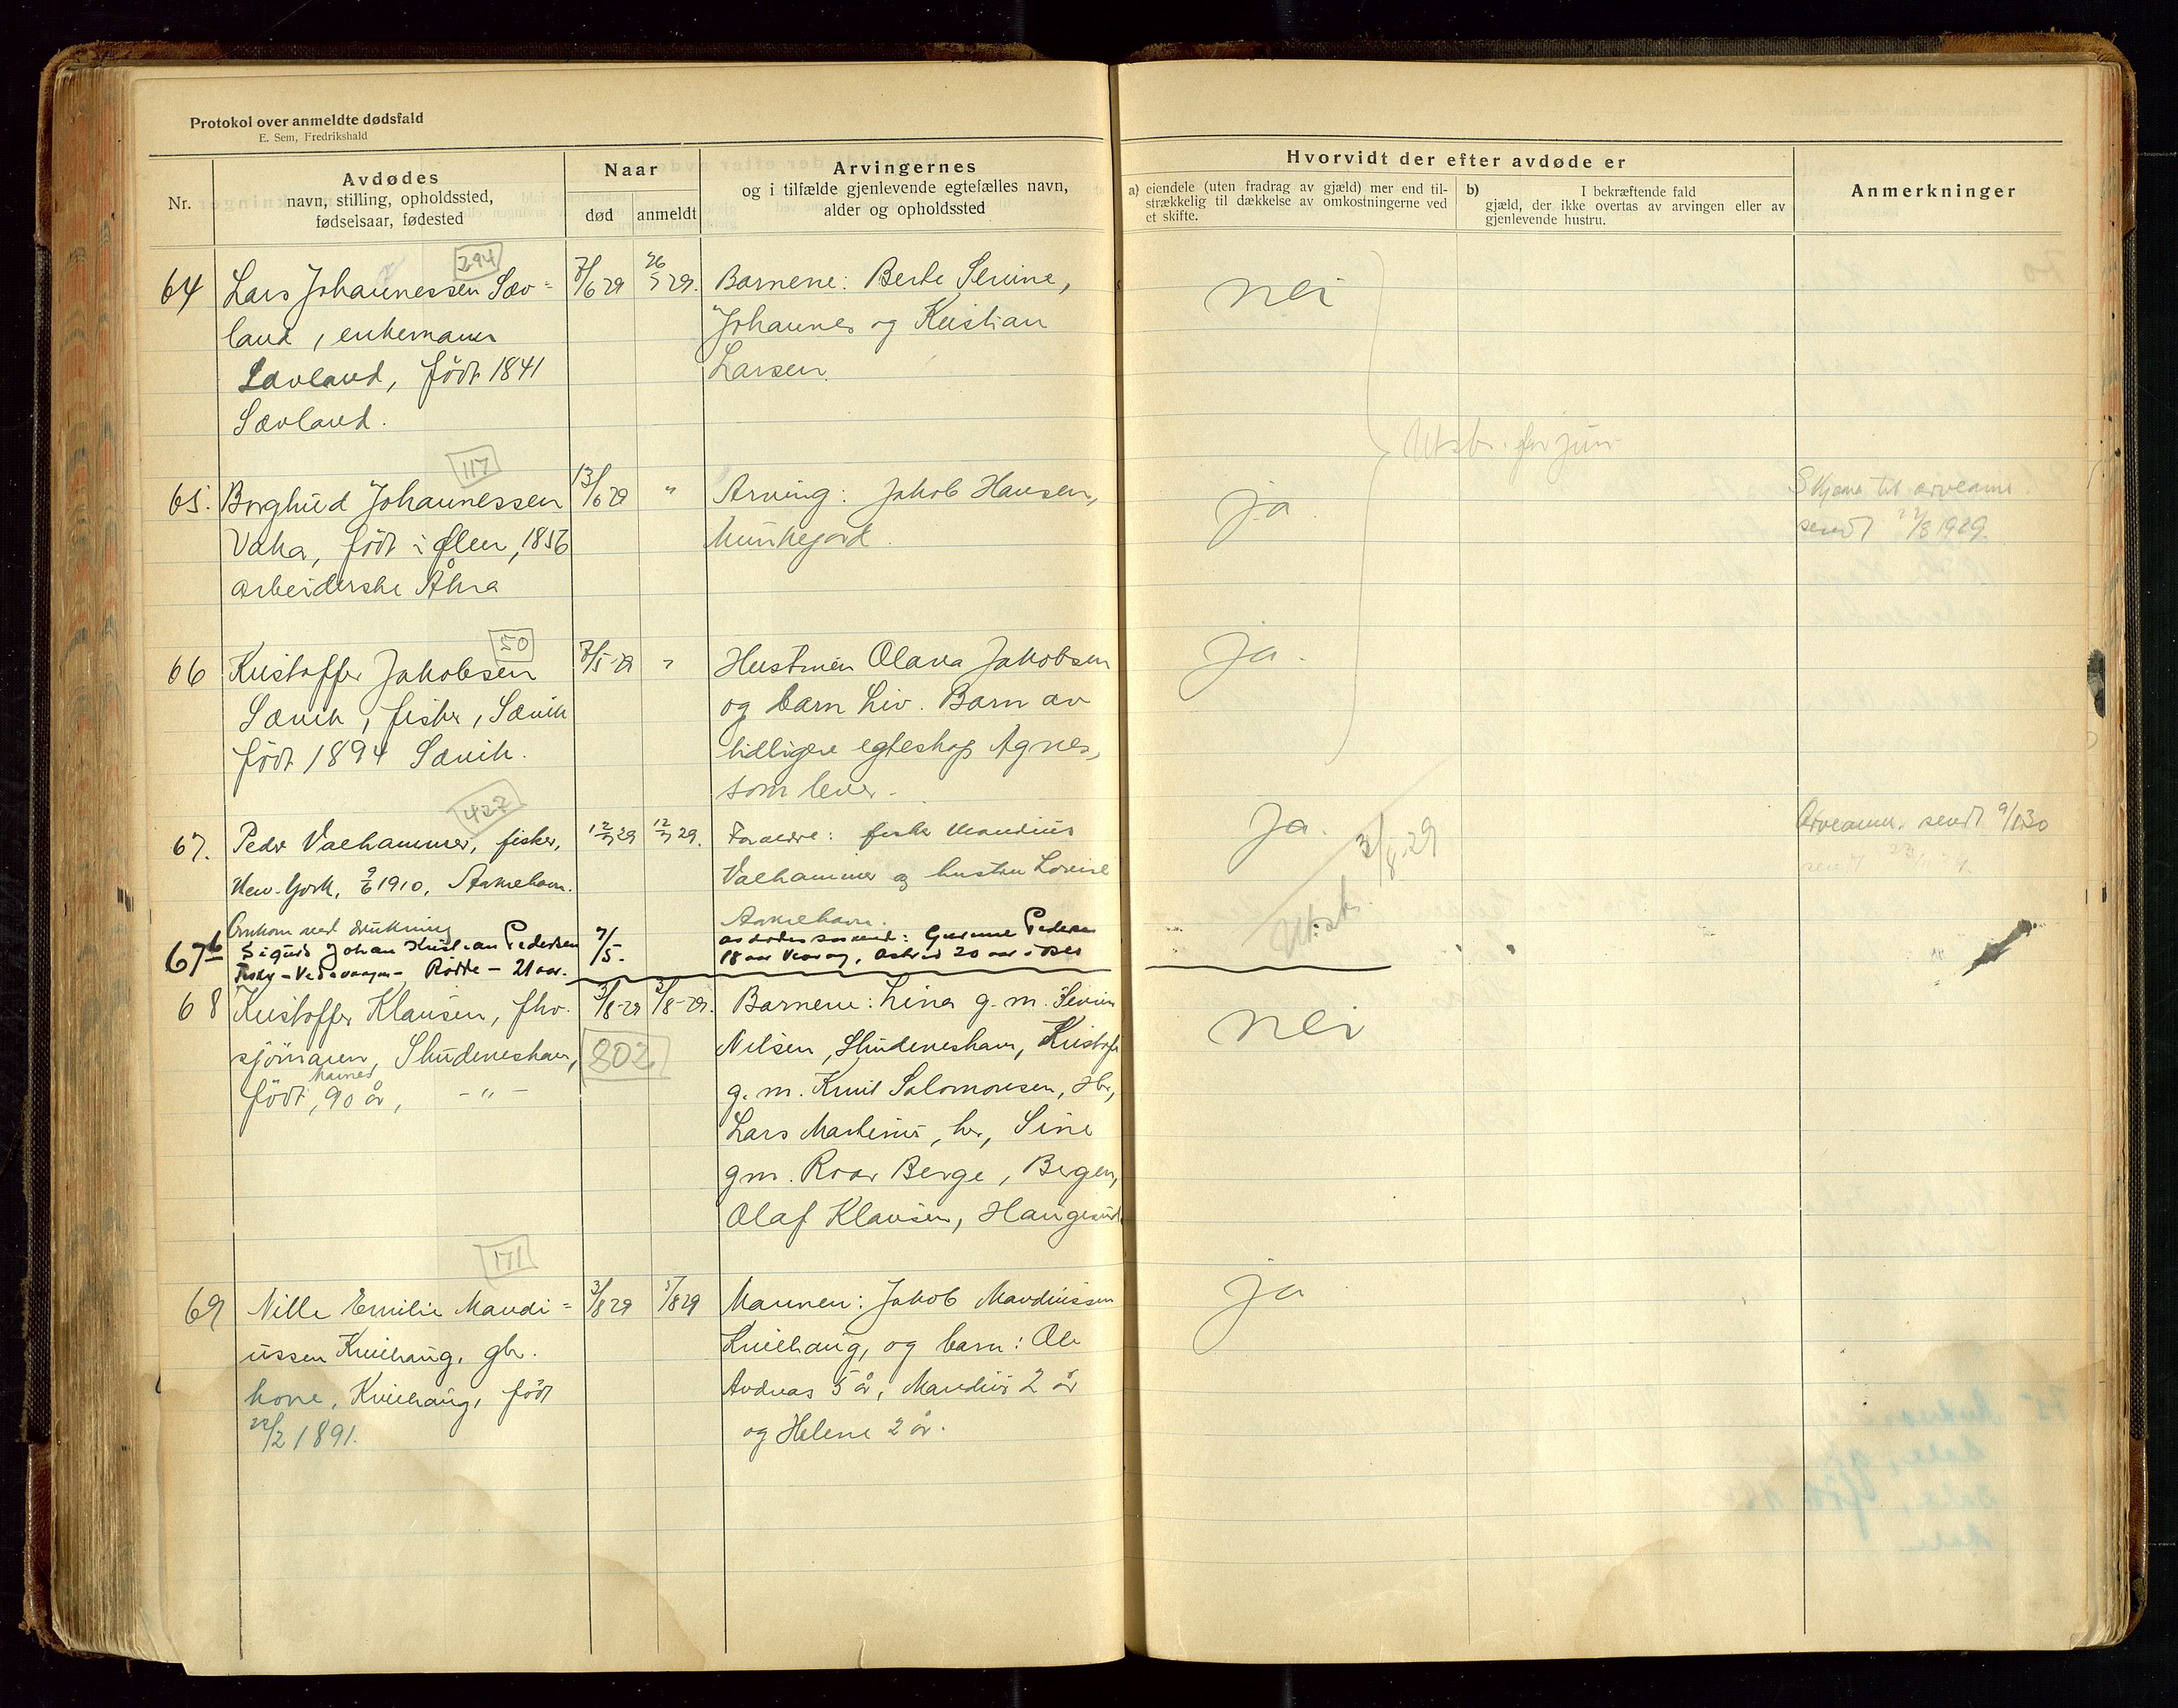 Protokol over anmeldte dødsfald
E. Sem, Fredrikshald
Nr.
Avdødes
navn, stilling, opholdssted,
fødselsaar, fødested
Naar
død
anmeldt
Arvingernes
og i tilfælde gjenlevende egtefælles navn,
alder og opholdssted
Hvorvidt der efter avdøde er
a) eiendele (uten fradrag av gjæld) mer end til-
strækkelig til dækkelse av omkostningerne ved
et skifte.
b) I bekræftende fald
gjæld, der ikke overtas av arvingen eller av
gjenlevende hustru.
Anmerkninger
294
64 Lars Johannessen Sæv- 7/6 29 26/5 29. Barnene: Berte Serine, nei
land, enkemann Johannes og Kristian
Sævland, født 1841 Larsen.
Sævland.
Utsbr. for juni
117
65. Borghild Johannessen 13/6 29 " Arving: Jakob Hansen, ja. Skjema til arveanm.
Vaka, født i Ølen, 1856 Munkejord. sendt 22/8 1929.
arbeiderske Åkra
50
66 Kristoffer Jakobsen 7/5-29 " Hustruen Olava Jakobsen ja.
Sævik, fisker, Sævik og barn Liv. Barn av
født 1894 Sævik. tidligere egteskap Agnes,
som lever.
427
67. Peder Vaehammer, fisker, 12/7 29 12/7 29. Foreldre: fisker Mandius ja. Arveanm. sendt 9/1 30
New-York, 9/6 1910, Aakrehavn. Vaehammer og hustru Lovise
Aakrehavn.
Utsbr. 3/8-29
Omkom ved drukning
67b Sigurd Johan Kristian Pedersen 7/5- avdødes søskend: Gurine Pedersen
Fisker - Vedavaagen - Rødde - 21 aar. 18 aar
68 Kristoffer Klausen, fhv. 3/8-29 3/8-29. Barnene: Lina g. m. Sevrin nei
sjømann, Skudeneshavn, 802 Nilsen, Skudeneshavn, Kristofa
født, 90 år, - " - g. m. Knut Salomonsen, Hbr,
Lars Martinus, her, Sine
gm. Roar Berge, Bergen,
Olaf Klausen, Haugesund
171
69 Nille Emilie Mandi- 3/8 29 5/8 29 Mannen: Jakob Mandiussen ja
ussen Kvilhaug, gbr. Kvilhaug, og barn: Ole
kone, Kvilhaug, født Andreas 5 år, Mandius 2 år
22/2 1891. og Helene 2 år.